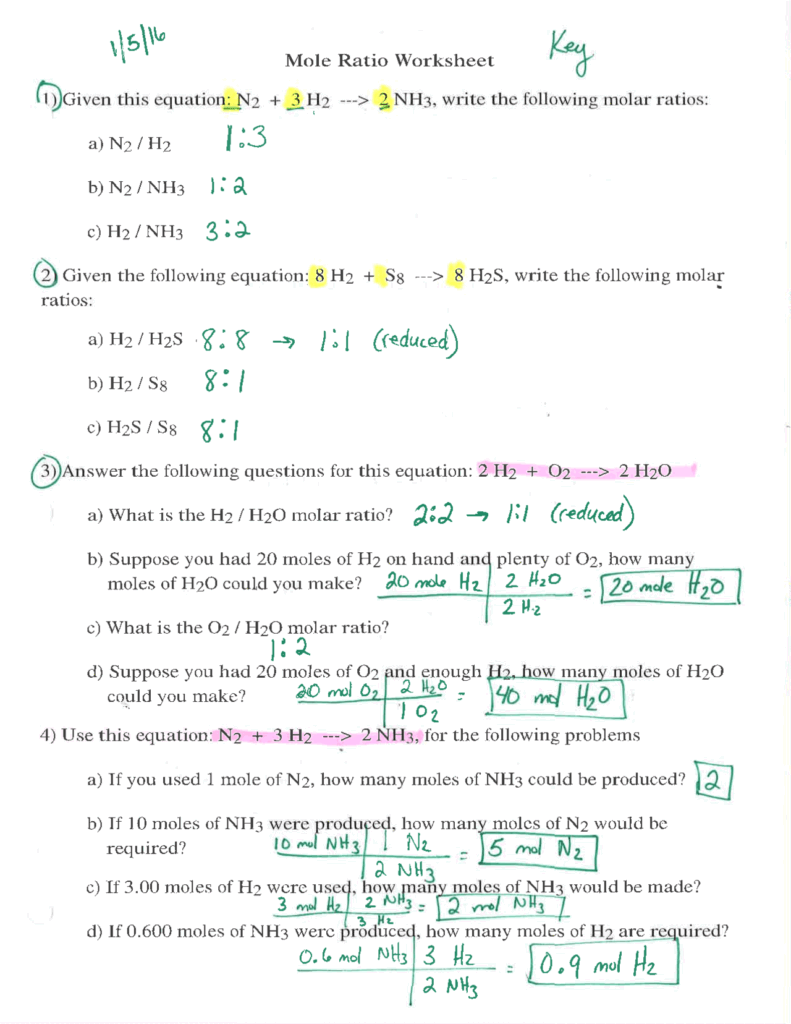 1/5/16
Key
Mole Ratio Worksheet
1) Given this equation: N2 + 3 H2 ---> 2 NH3, write the following molar ratios:
a) N2 / H2 1:3
b) N2 / NH3 1:2
c) H2 / NH3 3:2
2) Given the following equation: 8 H2 + S8 ---> 8 H2S, write the following molar
ratios:
a) H2 / H2S 8:8 → 1:1 (reduced)
b) H2 / S8 8:1
c) H2S / S8 8:1
3) Answer the following questions for this equation: 2 H2 + O2 ---> 2 H2O
a) What is the H2 / H2O molar ratio? 2:2 → 1:1 (reduced)
b) Suppose you had 20 moles of H2 on hand and plenty of O2, how many
moles of H2O could you make? 20 mole H2 | 2 H2O = 20 mole H2O
2 H2
c) What is the O2 / H2O molar ratio?
1:2
d) Suppose you had 20 moles of O2 and enough H2, how many moles of H2O
could you make? 20 mol O2 | 2 H2O = 40 mol H2O
1 O2
4) Use this equation: N2 + 3 H2 ---> 2 NH3, for the following problems
a) If you used 1 mole of N2, how many moles of NH3 could be produced? 2
b) If 10 moles of NH3 were produced, how many moles of N2 would be
required? 10 mol NH3 | 1 N2 = 5 mol N2
2 NH3
c) If 3.00 moles of H2 were used, how many moles of NH3 would be made?
3 mol H2 | 2 NH3 = 2 mol NH3
3 H2
d) If 0.600 moles of NH3 were produced, how many moles of H2 are required?
0.6 mol NH3 | 3 H2 = 0.9 mol H2
2 NH3